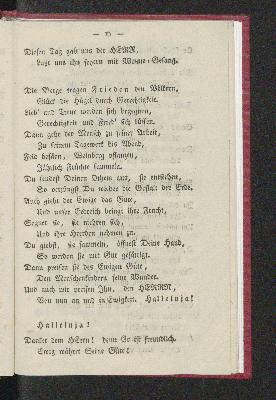 — 15 —
Diesen Tag gab uns der HERR,
Laßt uns ihn feyern mit Wonne-Gesang.
Die Berge tragen Frieden den Völkern,
Glück die Hügel durch Gerechtigkeit.
Lieb' und Treue werden sich begegnen,
Gerechtigkeit und Fried' sich küssen.
Dann geht der Mensch zu seiner Arbeit,
Zu seinem Tagewerk bis Abend,
Feld besäen, Weinberg pflanzen,
Jährlich Früchte sammeln.
Du sendest Deinen Athem aus, sie entstehen,
So verjüngst Du wieder die Gestalt der Erde.
Auch giebt der Ewige das Gute,
Und unser Erdreich bringt ihre Frucht,
Segnet sie, sie mehren sich,
Und ihre Heerden nehmen zu.
Du giebst, sie sammeln, öffnest Deine Hand,
So werden sie mit Gut gesättigt.
Dann preisen sie des Ewigen Güte,
Den Menschenkindern seine Wunder.
Und auch wir preisen Ihn, den HERRN,
Von nun an und in Ewigkeit. Halleluja!
Halleluja!
Danket dem HErrn! denn Er ist freundlich.
Ewig währet Seine Güte!